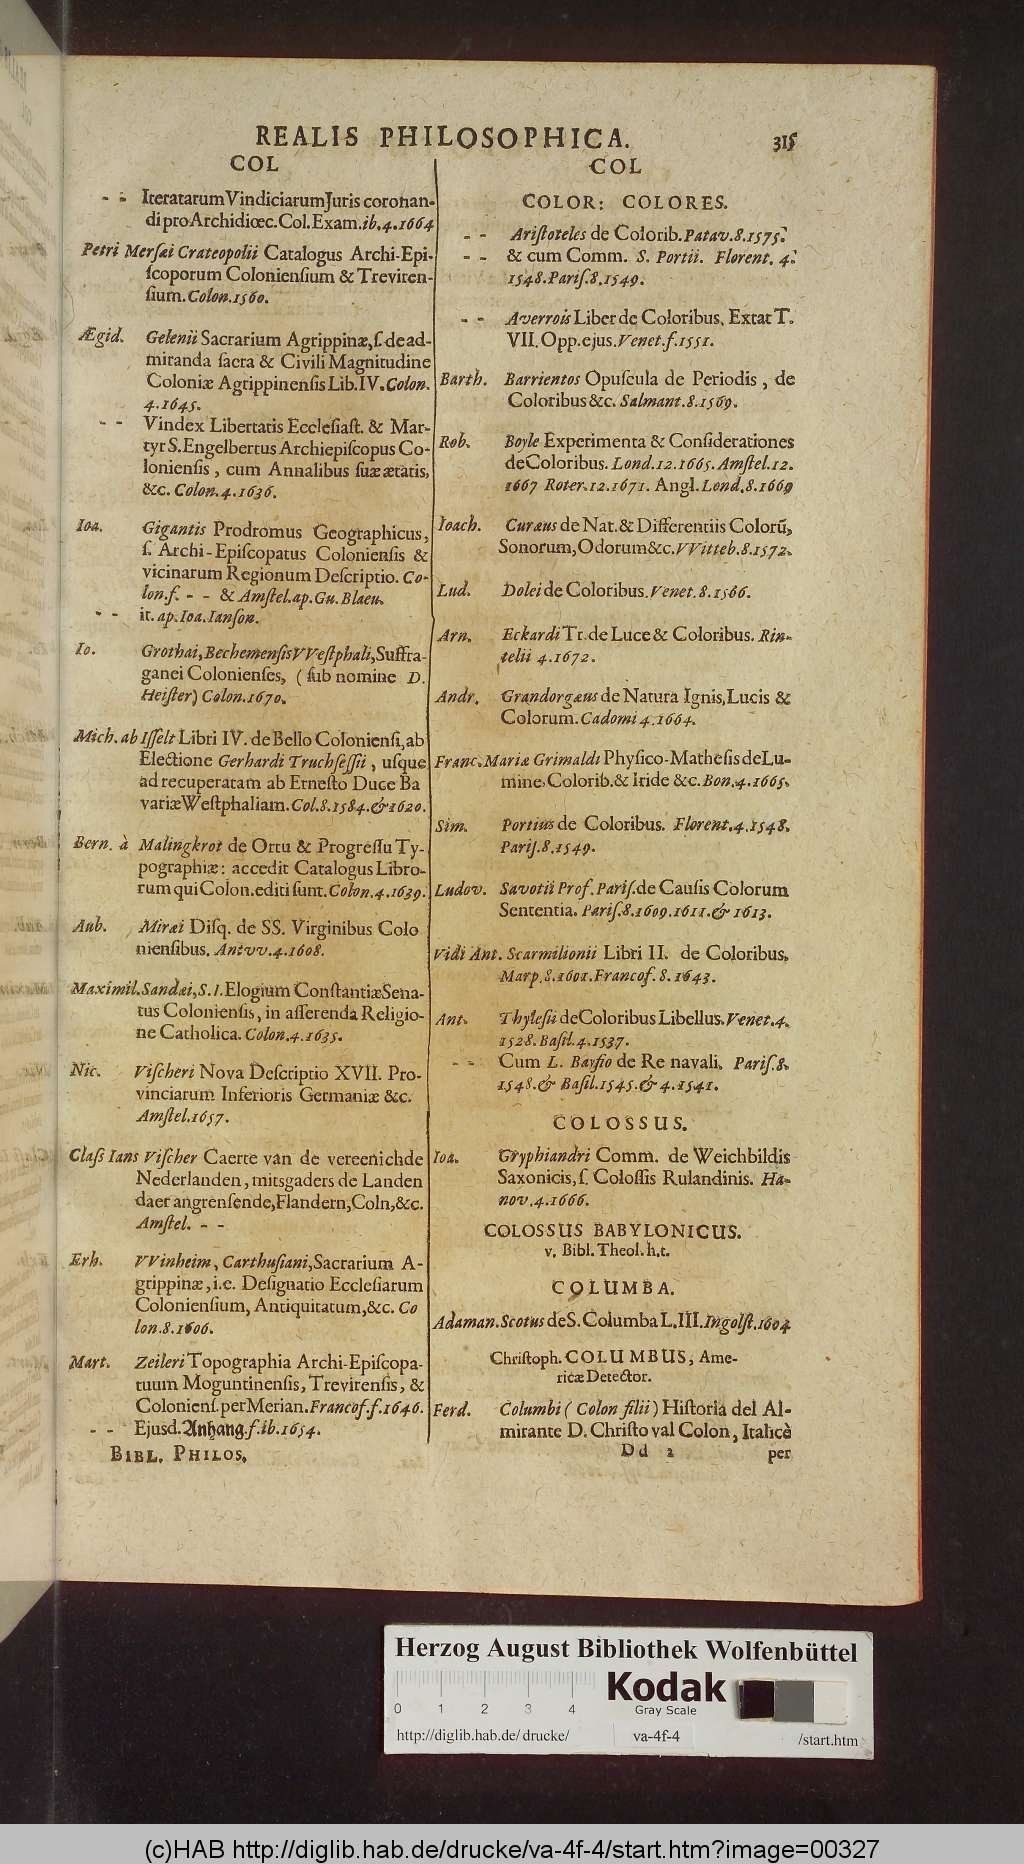 REALIS PHILOSOPHICA. 315
COL
- - Iteratarum Vindiciarum Juris coronan-
di pro Archidiœc. Col. Exam. ib. 4. 1664
Petri Mersæi Crateopolii Catalogus Archi-Epi-
ſcoporum Colonienſium & Treviren-
ſium. Colon. 1560.
Ægid. Gelenii Sacrarium Agrippinæ, ſ. de ad-
miranda ſacra & Civili Magnitudine
Coloniæ Agrippinenſis Lib. IV. Colon.
4. 1645.
- - Vindex Libertatis Eccleſiaſt. & Mar-
tyr S. Engelbertus Archiepiſcopus Co-
lonienſis, cum Annalibus ſuæ ætatis,
&c. Colon. 4. 1636.
Ioa. Gigantis Prodromus Geographicus,
ſ. Archi-Epiſcopatus Colonienſis &
vicinarum Regionum Deſcriptio. Co-
lon. f. - - & Amſtel. ap. Gu. Blaeu.
- - it. ap. Ioa. Ianſon.
Io. Grothai, Bechemenſis VVeſtphali, Suffra-
ganei Colonienſes, (ſub nomine D.
Heiſter) Colon. 1670.
Mich. ab Iſſelt Libri IV. de Bello Colonienſi, ab
Electione Gerhardi Truchſeſſii, uſque
ad recuperatam ab Erneſto Duce Ba
variæ Weſtphaliam. Col. 8. 1584. & 1620.
Bern. à Malingkrot de Ortu & Progreſſu Ty-
pographiæ: accedit Catalogus Libro-
rum qui Colon. editi ſunt. Colon. 4. 1639.
Aub. Miræi Diſq. de SS. Virginibus Colo
nienſibus. Antvv. 4. 1608.
Maximil. Sandæi, S. I. Elogium Conſtantiæ Sena-
tus Colonienſis, in aſſerenda Religio-
ne Catholica. Colon. 4. 1635.
Nic. Viſcheri Nova Deſcriptio XVII. Pro-
vinciarum Inferioris Germaniæ &c.
Amſtel. 1657.
Claſs Ians Viſcher Caerte van de vereenichde
Nederlanden, mitsgaders de Landen
daer angrenſende, Flandern, Coln, &c.
Amſtel. - -
Erh. VVinheim, Carthuſiani, Sacrarium A-
grippinæ, i. e. Deſignatio Eccleſiarum
Colonienſium, Antiquitatum, &c. Co
lon. 8. 1606.
Mart. Zeileri Topographia Archi-Epiſcopa-
tuum Moguntinenſis, Trevirenſis, &
Colonienſ. per Merian. Francof. f. 1646.
- - Ejusd. Anhang. f. ib. 1654.
BIBL. PHILOS.
COL
COLOR: COLORES.
- - Ariſtoteles de Colorib. Patav. 8. 1575.
- - & cum Comm. S. Portii. Florent. 4.
1548. Pariſ. 8. 1549.
- - Averrois Liber de Coloribus. Extat T.
VII. Opp. ejus. Venet. f. 1551.
Barth. Barrientos Opuſcula de Periodis, de
Coloribus &c. Salmant. 8. 1569.
Rob. Boyle Experimenta & Conſiderationes
de Coloribus. Lond. 12. 1665. Amſtel. 12.
1667 Roter. 12. 1671. Angl. Lond. 8. 1669
Ioach. Curæus de Nat. & Differentiis Colorū,
Sonorum, Odorum &c. VVitteb. 8. 1572.
Lud. Dolei de Coloribus. Venet. 8. 1566.
Arn. Eckardi Tr. de Luce & Coloribus. Rin-
telii 4. 1672.
Andr. Grandorgæus de Natura Ignis, Lucis &
Colorum. Cadomi 4. 1664.
Franc. Mariæ Grimaldi Phyſico-Matheſis de Lu-
mine, Colorib. & Iride &c. Bon. 4. 1665.
Sim. Portius de Coloribus. Florent. 4. 1548.
Pariſ. 8. 1549.
Ludov. Savotii Prof. Pariſ. de Cauſis Colorum
Sententia. Pariſ. 8. 1609. 1611. & 1613.
Vidi Ant. Scarmilionii Libri II. de Coloribus.
Marp. 8. 1601. Francof. 8. 1643.
Ant. Thyleſii de Coloribus Libellus. Venet. 4.
1528. Baſil. 4. 1537.
- - Cum L. Bayfio de Re navali. Pariſ. 8.
1548. & Baſil. 1545. & 4. 1541.
COLOSSUS.
Ioa. Gryphiandri Comm. de Weichbildis
Saxonicis, ſ. Coloſſis Rulandinis. Ha-
nov. 4. 1666.
COLOSSUS BABYLONICUS.
v. Bibl. Theol. h. t.
COLUMBA.
Adaman. Scotus de S. Columba L. III. Ingolſt. 1604
Chriſtoph. COLUMBUS, Ame-
ricæ Detector.
Ferd. Columbi (Colon filii) Hiſtoria del Al-
mirante D. Chriſtoval Colon, Italicè
Dd 2 per
Herzog August Bibliothek Wolfenbüttel
0 1 2 3 4
Kodak
Gray Scale
http://diglib.hab.de/drucke/ va-4f-4 /start.htm
(c)HAB http://diglib.hab.de/drucke/va-4f-4/start.htm?image=00327